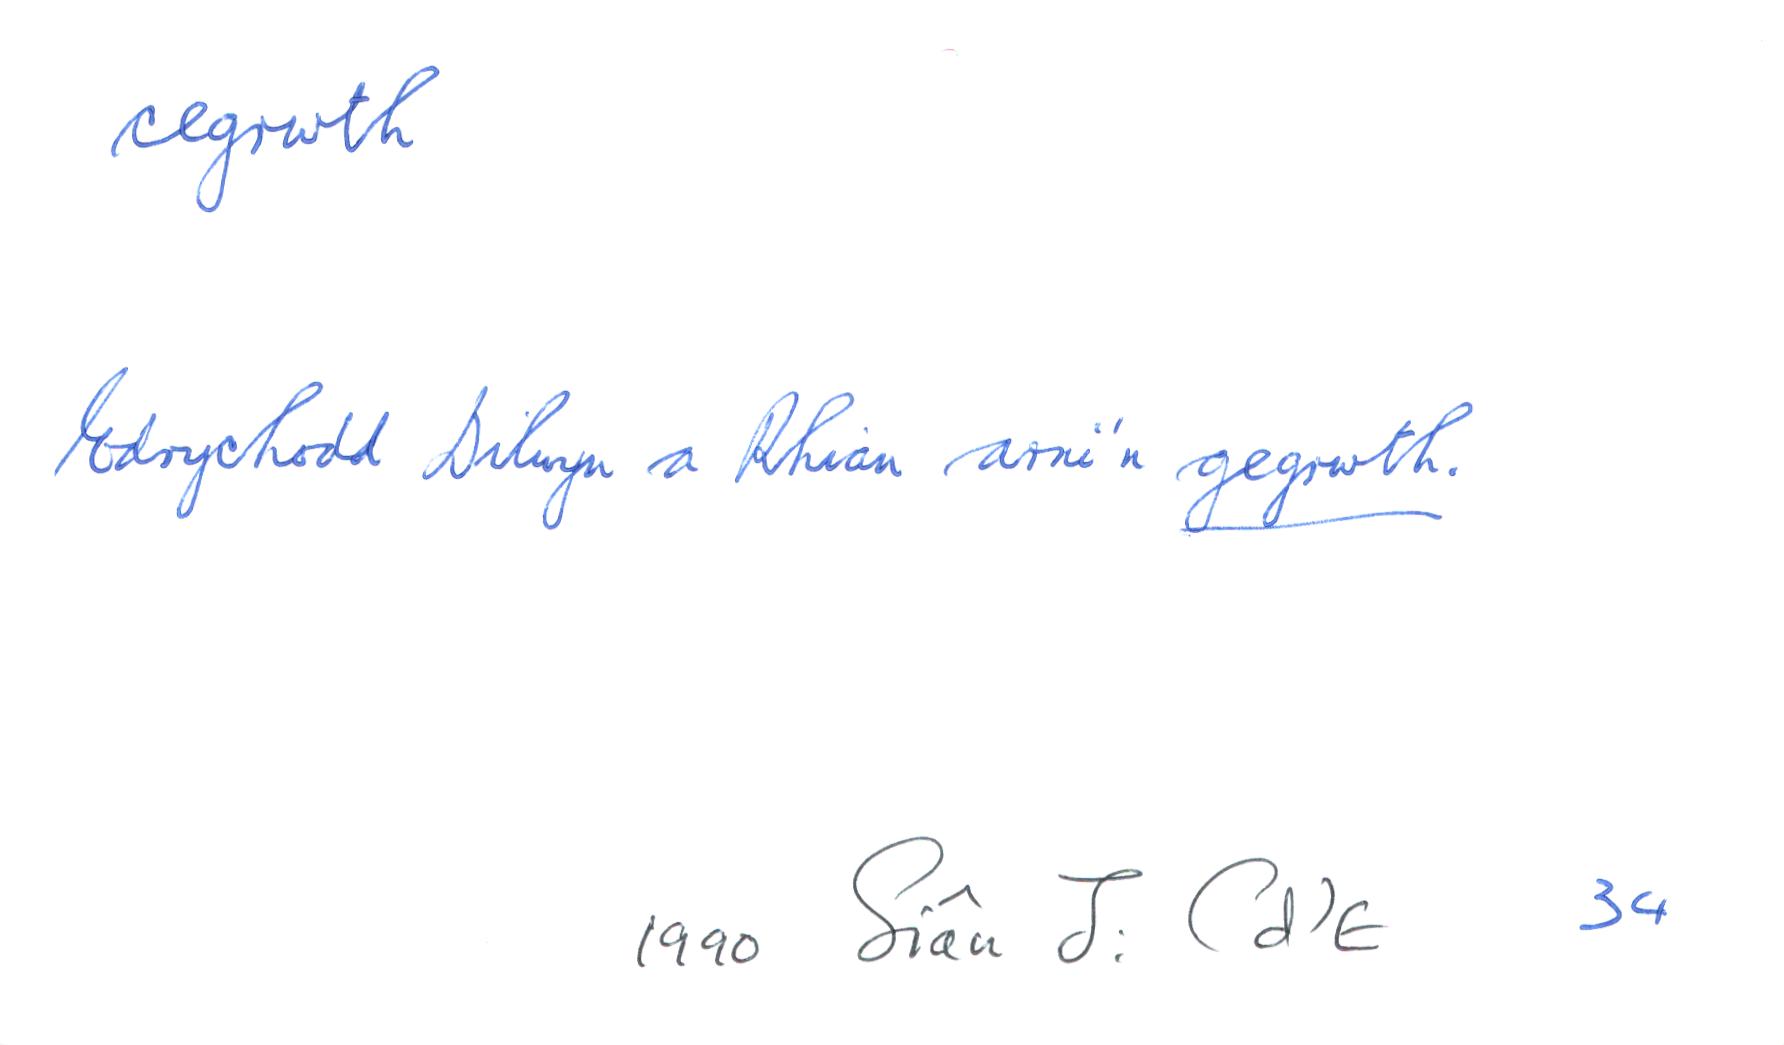 cegrwth
Edrychodd Dilwyn a Rhian arni'n gegrwth.
1990 Siân J: Cd'E 34